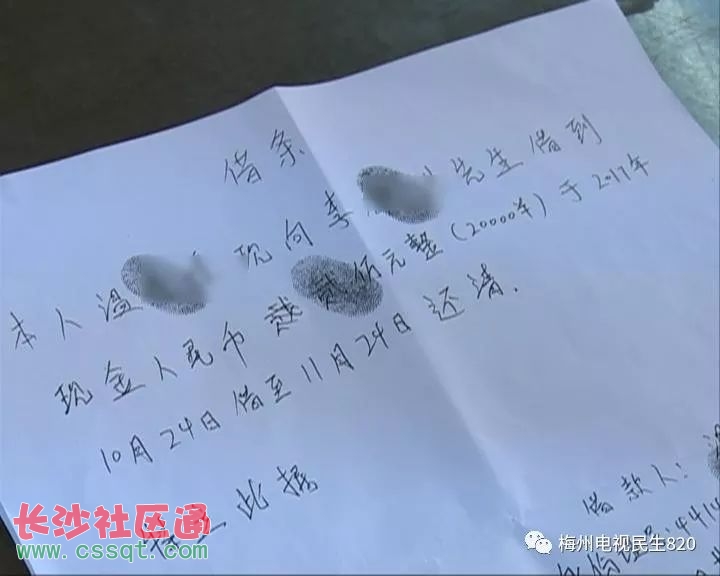 借条
本人温 现向李 先生借到
现金人民币 贰 佰元整(20000￥)于2017年
10月24日借至11月24日还清.
特立此据
借款人:
身份证号:4414
长沙社区通
www.cssqt.com
梅州电视民生820